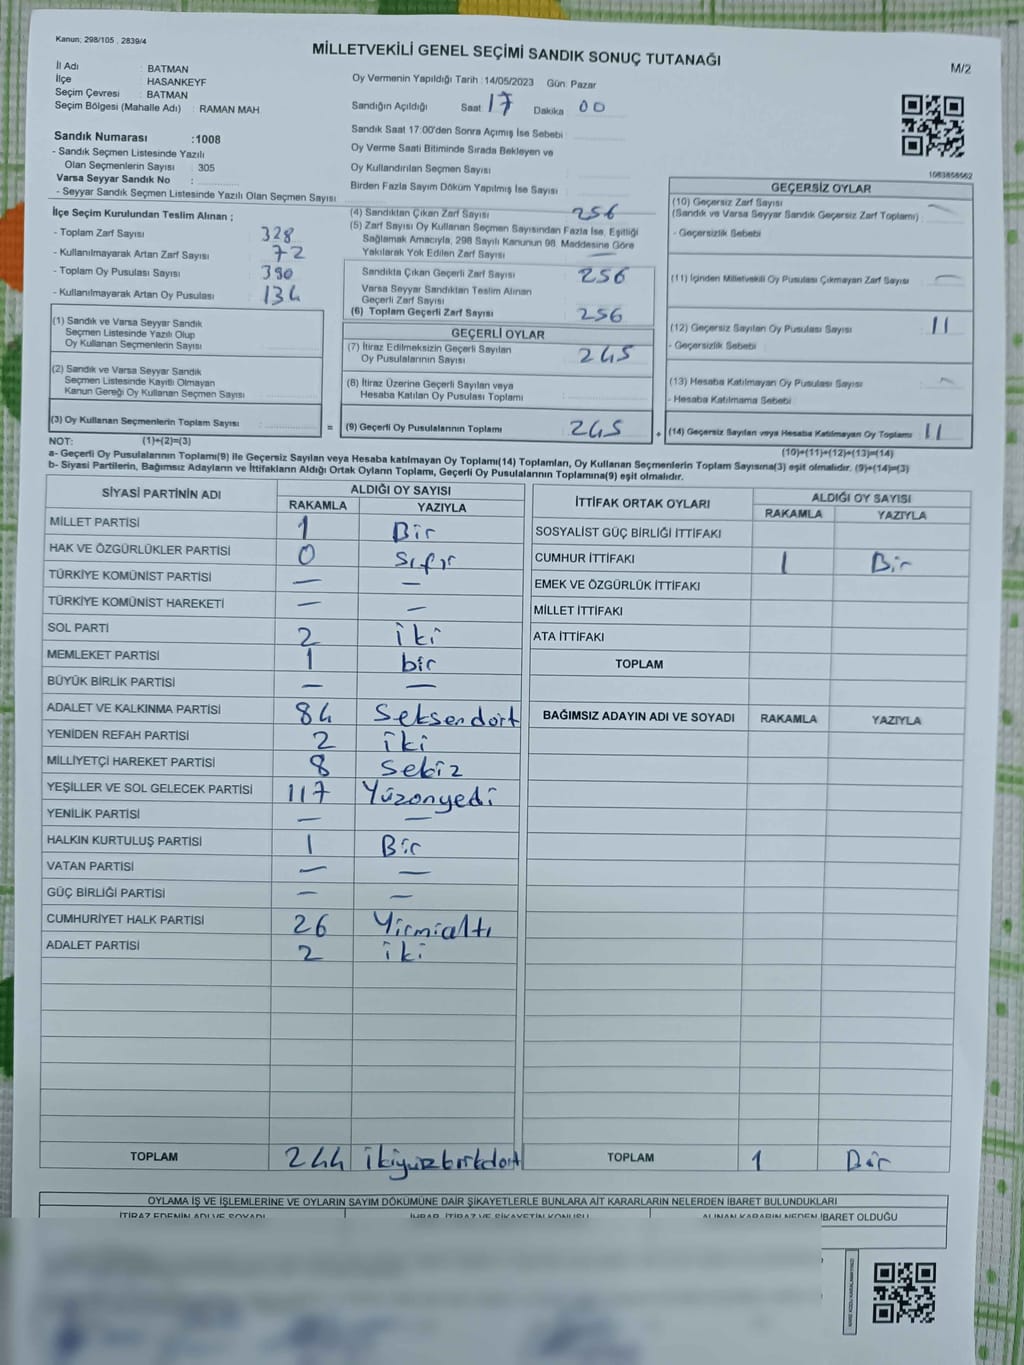 Kanun: 298/105 , 2839/4
MİLLETVEKİLİ GENEL SEÇİMİ SANDIK SONUÇ TUTANAĞI
M/2
İl Adı : BATMAN
İlçe : HASANKEYF
Seçim Çevresi : BATMAN
Seçim Bölgesi (Mahalle Adı) : RAMAN MAH.
Oy Vermenin Yapıldığı Tarih : 14/05/2023 Gün: Pazar
Sandığın Açıldığı Saat 17 Dakika 00
Sandık Saat 17:00'den Sonra Açımış İse Sebebi :
Oy Verme Saati Bitiminde Sırada Bekleyen ve
Oy Kullandırılan Seçmen Sayısı :
Birden Fazla Sayım Döküm Yapılmış İse Sayısı :
Sandık Numarası :1008
- Sandık Seçmen Listesinde Yazılı
Olan Seçmenlerin Sayısı : 305
Varsa Seyyar Sandık No :
- Seyyar Sandık Seçmen Listesinde Yazılı Olan Seçmen Sayısı :
1083858562
İlçe Seçim Kurulundan Teslim Alınan ;
- Toplam Zarf Sayısı : 328
- Kullanılmayarak Artan Zarf Sayısı : 72
- Toplam Oy Pusulası Sayısı : 390
- Kullanılmayarak Artan Oy Pusulası : 134
(1) Sandık ve Varsa Seyyar Sandık
Seçmen Listesinde Yazılı Olup
Oy Kullanan Seçmenlerin Sayısı :
(2) Sandık ve Varsa Seyyar Sandık
Seçmen Listesinde Kayıtlı Olmayan
Kanun Gereği Oy Kullanan Seçmen Sayısı :
(3) Oy Kullanan Seçmenlerin Toplam Sayısı : =
(4) Sandıktan Çıkan Zarf Sayısı : 256
(5) Zarf Sayısı Oy Kullanan Seçmen Sayısından Fazla İse, Eşitliği
Sağlamak Amacıyla, 298 Sayılı Kanunun 98. Maddesine Göre
Yakılarak Yok Edilen Zarf Sayısı : —
Sandıkta Çıkan Geçerli Zarf Sayısı : 256
Varsa Seyyar Sandıktan Teslim Alınan
Geçerli Zarf Sayısı :
(6) Toplam Geçerli Zarf Sayısı : 256
GEÇERLİ OYLAR
(7) İtiraz Edilmeksizin Geçerli Sayılan
Oy Pusulalarının Sayısı : 245
(8) İtiraz Üzerine Geçerli Sayılan veya
Hesaba Katılan Oy Pusulası Toplamı :
(9) Geçerli Oy Pusulalarının Toplamı : 245 +
GEÇERSİZ OYLAR
(10) Geçersiz Zarf Sayısı
(Sandık ve Varsa Seyyar Sandık Geçersiz Zarf Toplamı) : —
- Geçersizlik Sebebi :
(11) İçinden Milletvekili Oy Pusulası Çıkmayan Zarf Sayısı : —
(12) Geçersiz Sayılan Oy Pusulası Sayısı : 11
- Geçersizlik Sebebi :
(13) Hesaba Katılmayan Oy Pusulası Sayısı : —
- Hesaba Katılmama Sebebi :
(14) Geçersiz Sayılan veya Hesaba Katılmayan Oy Toplamı : 11
NOT: (1)+(2)=(3) (10)+(11)+(12)+(13)=(14)
a- Geçerli Oy Pusulalarının Toplamı(9) ile Geçersiz Sayılan veya Hesaba katılmayan Oy Toplamı(14) Toplamları, Oy Kullanan Seçmenlerin Toplam Sayısına(3) eşit olmalıdır. (9)+(14)=(3)
b- Siyasi Partilerin, Bağımsız Adayların ve İttifakların Aldığı Ortak Oyların Toplamı, Geçerli Oy Pusulalarının Toplamına(9) eşit olmalıdır.
SİYASİ PARTİNİN ADI ALDIĞI OY SAYISI
RAKAMLA YAZIYLA
MİLLET PARTİSİ 1 Bir
HAK VE ÖZGÜRLÜKLER PARTİSİ 0 Sıfır
TÜRKİYE KOMÜNİST PARTİSİ — —
TÜRKİYE KOMÜNİST HAREKETİ — —
SOL PARTİ 2 iki
MEMLEKET PARTİSİ 1 bir
BÜYÜK BİRLİK PARTİSİ — —
ADALET VE KALKINMA PARTİSİ 84 Seksendört
YENİDEN REFAH PARTİSİ 2 iki
MİLLİYETÇİ HAREKET PARTİSİ 8 Sekiz
YEŞİLLER VE SOL GELECEK PARTİSİ 117 Yüzonyedi
YENİLİK PARTİSİ — —
HALKIN KURTULUŞ PARTİSİ 1 Bir
VATAN PARTİSİ — —
GÜÇ BİRLİĞİ PARTİSİ — —
CUMHURİYET HALK PARTİSİ 26 Yirmialtı
ADALET PARTİSİ 2 iki
TOPLAM 244 ikiyüzkırkdört
İTTİFAK ORTAK OYLARI ALDIĞI OY SAYISI
RAKAMLA YAZIYLA
SOSYALİST GÜÇ BİRLİĞİ İTTİFAKI
CUMHUR İTTİFAKI 1 Bir
EMEK VE ÖZGÜRLÜK İTTİFAKI
MİLLET İTTİFAKI
ATA İTTİFAKI
TOPLAM
BAĞIMSIZ ADAYIN ADI VE SOYADI RAKAMLA YAZIYLA
TOPLAM 1 Bir
OYLAMA İŞ VE İŞLEMLERİNE VE OYLARIN SAYIM DÖKÜMÜNE DAİR ŞİKAYETLERLE BUNLARA AİT KARARLARIN NELERDEN İBARET BULUNDUKLARI
İTİRAZ EDENİN ADI VE SOYADI İHBAR, İTİRAZ VE ŞİKAYETİN KONUSU ALINAN KARARIN NEDEN İBARET OLDUĞU